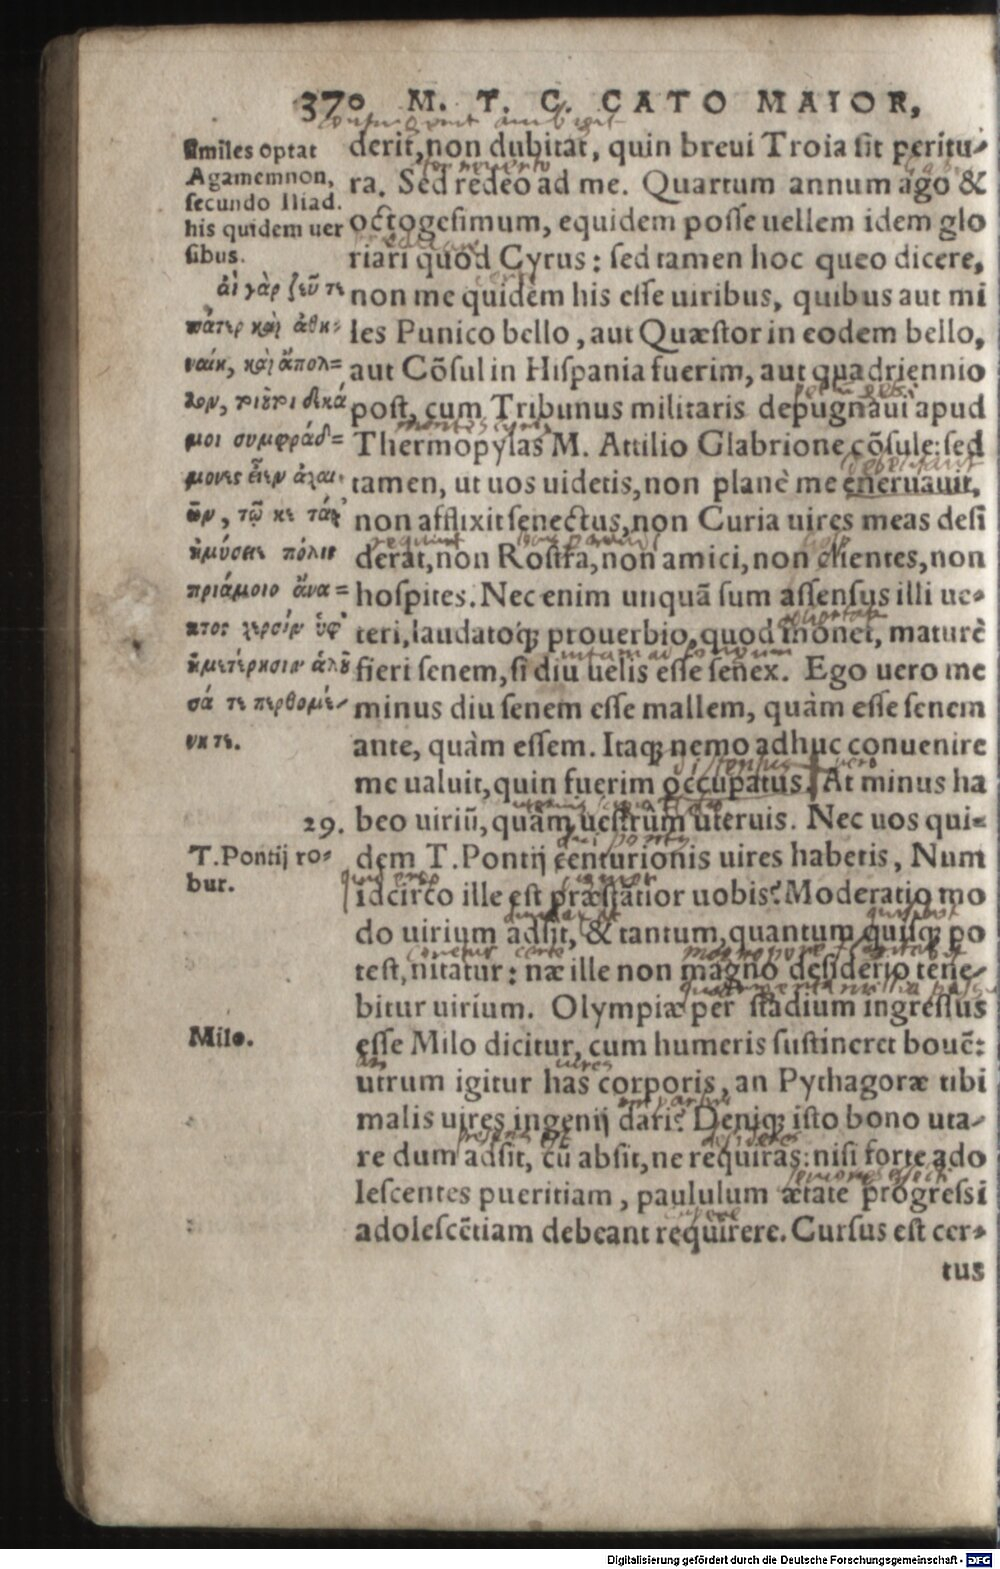 370 M. T. C. CATO MAIOR,
derit, non dubitat, quin breui Troia sit peritu-
ra. Sed redeo ad me. Quartum annum ago &
octogesimum, equidem posse uellem idem glo
riari quod Cyrus: sed tamen hoc queo dicere,
non me quidem his esse uiribus, quibus aut mi
les Punico bello, aut Quæstor in eodem bello,
aut Cõsul in Hispania fuerim, aut quadriennio
post, cum Tribunus militaris depugnaui apud
Thermopylas M. Attilio Glabrione cõsule: sed
tamen, ut uos uidetis, non planè me eneruauit,
non afflixit senectus, non Curia uires meas desi
derat, non Rostra, non amici, non clientes, non
hospites. Nec enim unquã sum assensus illi ue-
teri, laudatoq́; prouerbio, quod monet, maturè
fieri senem, si diu uelis esse senex. Ego uero me
minus diu senem esse mallem, quàm esse senem
ante, quàm essem. Itaq; nemo adhuc conuenire
me ualuit, quin fuerim occupatus. At minus ha
beo uiriũ, quàm uestrum uteruis. Nec uos qui-
dem T. Pontij centurionis uires habetis, Num
idcirco ille est præstatior uobis? Moderatio mo
do uirium adsit, & tantum, quantum quisq; po
test, nitatur: næ ille non magno desiderio tene-
bitur uirium. Olympiæ per stadium ingressus
esse Milo dicitur, cum humeris sustineret bouẽ:
utrum igitur has corporis, an Pythagoræ tibi
malis uires ingenij dari? Deniq; isto bono uta-
re dum adsit, cũ absit, ne requiras: nisi forte ado
lescentes pueritiam, paululum ætate progressi
adolescẽtiam debeant requirere. Cursus est cer-
tus
Similes optat
Agamemnon,
secundo Iliad.
his quidem uer
sibus.
αἲ γὰρ ζεῦ τε
πάτερ καὶ ἀθη-
ναίη, καὶ ἄπολ-
λον, τοιοῦτοι δεκά
μοι συμφράδ-
μονες εἶεν ἀχαι-
ῶν, τῷ κε τάχ'
ἠμύσειε πόλις
πριάμοιο ἄνα-
κτος χερσὶν ὑφ'
ἡμετέρῃσιν ἁλοῦ
σά τε περθομέ-
νη τε.
29.
T. Pontij ro-
bur.
Milo.
Digitalisierung gefördert durch die Deutsche Forschungsgemeinschaft - DFG